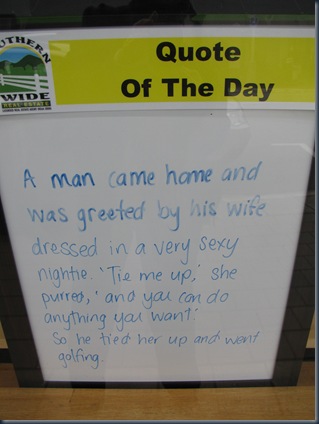 SOUTHERN
WIDE
REAL ESTATE
Quote
Of The Day
A man came home and
was greeted by his wife
dressed in a very sexy
nightie. 'Tie me up,' she
purred, 'and you can do
anything you want.'
So he tied her up and went
golfing.